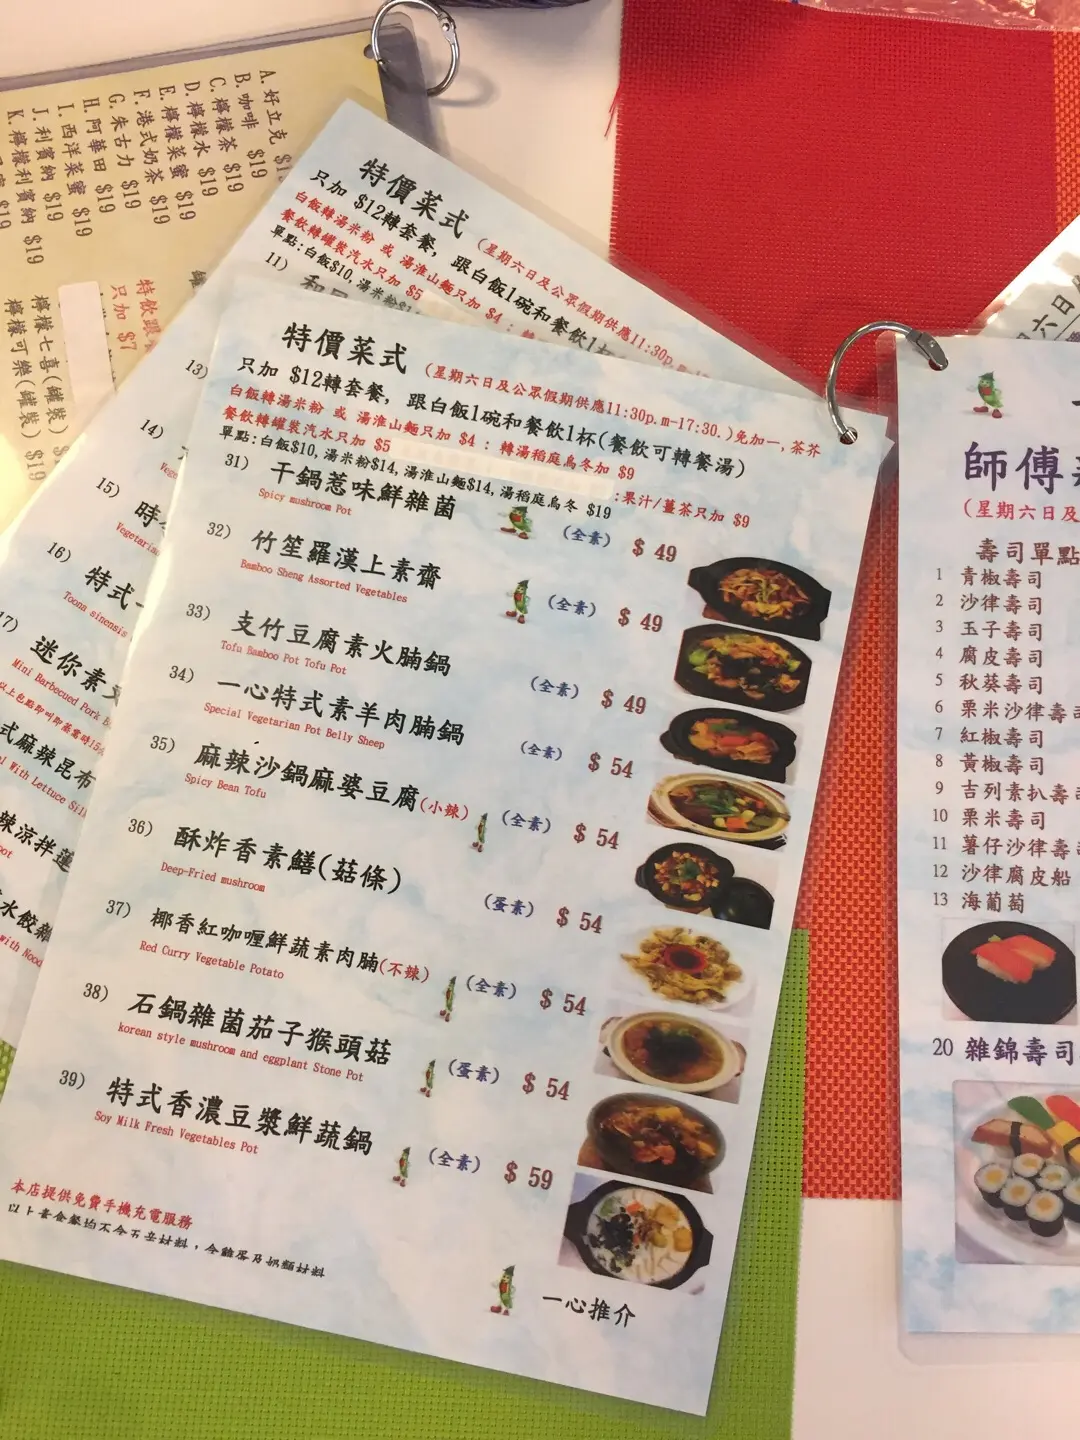 A. 好立克 $1
B. 咖啡 $19
C. 檸檬茶 $19
D. 檸檬水 $19
E. 檸檬菜蜜 $19
F. 港式奶茶 $19
G. 朱古力 $19
H. 阿華田 $19
I. 西洋菜蜜 $19
J. 利賓納 $19
K. 檸檬利賓納 $19
$19
特飲跟
只加 $7
檸檬七喜(罐裝) $19
檸檬可樂(罐裝) $19
特價菜式 (星期六日及公眾假期供應11:30p.m
只加 $12轉套餐, 跟白飯1碗和餐飲1杯
白飯轉湯米粉 或 湯淮山麵只加 $4 : 轉
餐飲轉罐裝汽水只加 $5
單點:白飯$10, 湯米粉$14
11)
13)
14)
15) 時
Vegetarian
16) 特式
Toona sinensis
17) 迷你素叉
Mini Barbecued Pork B
以上包點即叫即蒸需時15
式麻辣昆布
With Lettuce Sil
辣涼拌蓮
水餃雜
with Nood
特價菜式 (星期六日及公眾假期供應11:30p.m-17:30.)免加一,茶芥
只加 $12轉套餐, 跟白飯1碗和餐飲1杯(餐飲可轉餐湯)
白飯轉湯米粉 或 湯淮山麵只加 $4 : 轉湯稻庭烏冬加 $9
餐飲轉罐裝汽水只加 $5 :果汁/薑茶只加 $9
單點:白飯$10, 湯米粉$14, 湯淮山麵$14, 湯稻庭烏冬 $19
31) 干鍋惹味鮮雜菌 (全素) $ 49
Spicy mushroom Pot
32) 竹笙羅漢上素齋 (全素) $ 49
Bamboo Sheng Assorted Vegetables
33) 支竹豆腐素火腩鍋 (全素) $ 49
Tofu Bamboo Pot Tofu Pot
34) 一心特式素羊肉腩鍋 (全素) $ 54
Special Vegetarian Pot Belly Sheep
35) 麻辣沙鍋麻婆豆腐(小辣) (全素) $ 54
Spicy Bean Tofu
36) 酥炸香素鱔(菇條) (蛋素) $ 54
Deep-Fried mushroom
37) 椰香紅咖喱鮮蔬素肉腩(不辣) (全素) $ 54
Red Curry Vegetable Potato
38) 石鍋雜菌茄子猴頭菇 (蛋素) $ 54
korean style mushroom and eggplant Stone Pot
39) 特式香濃豆漿鮮蔬鍋 (全素) $ 59
Soy Milk Fresh Vegetables Pot
本店提供免費手機充電服務
一心推介
六日
師傅
(星期六日及
壽司單點
1 青椒壽司
2 沙律壽司
3 玉子壽司
4 腐皮壽司
5 秋葵壽司
6 栗米沙律壽司
7 紅椒壽司
8 黃椒壽司
9 吉列素扒壽司
10 栗米壽司
11 薯仔沙律壽
12 沙律腐皮船
13 海葡萄
20 雜錦壽司